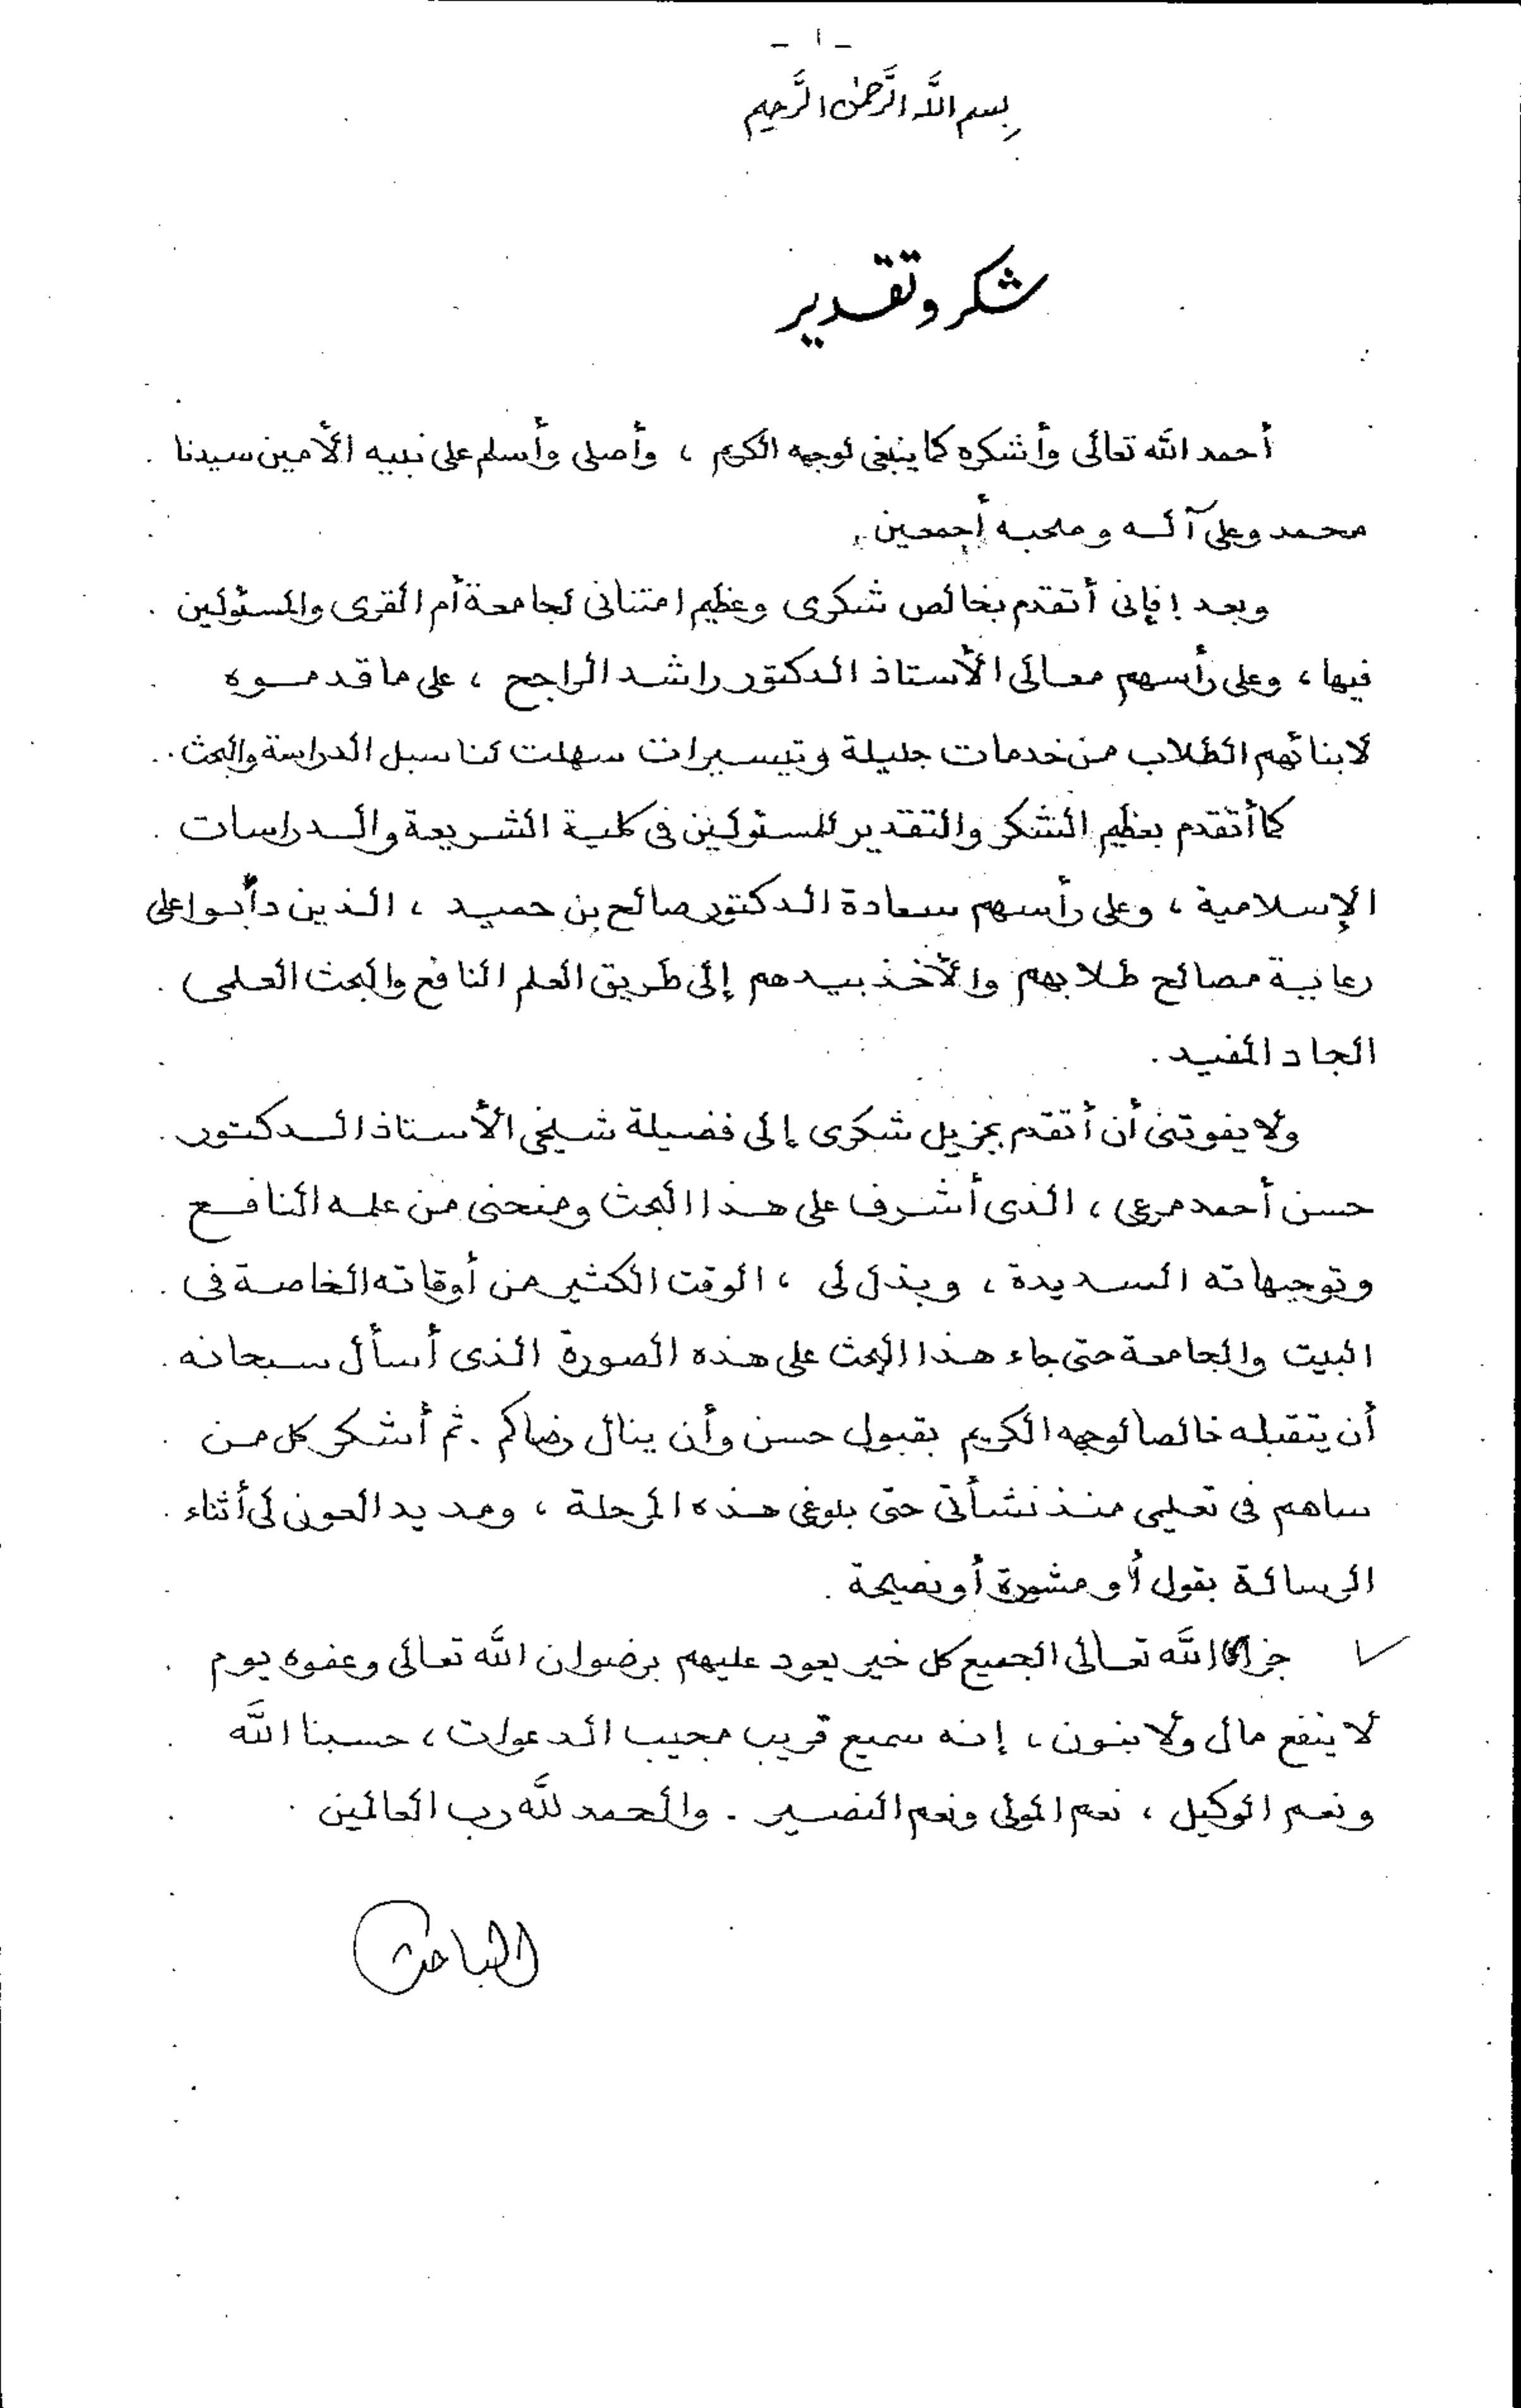 - ١ -
بسم اللَّه الرَّحمٰن الرَّحيم
شكر وتقدير
أحمد الله تعالى وأشكره كما ينبغى لوجهه الكريم ، وأصلى وأسلم على نبيه الأمين سيدنا
محمد وعلى آله وصحبه أجمعين .
وبعد ! فإنى أتقدم بخالص شكرى وعظيم امتنانى لجامعة أم القرى والمسئولين
فيها ، وعلى رأسهم معالى الأستاذ الدكتور راشد الراجح ، على ما قدموه
لابنائهم الطلاب من خدمات جليلة وتيسيرات سهلت لنا سبل الدراسة والبحث .
كما أتقدم بعظيم الشكر والتقدير للمسئولين فى كلية الشريعة والدراسات
الإسلامية ، وعلى رأسهم سعادة الدكتور صالح بن حميد ، الذين دأبوا على
رعاية مصالح طلابهم والأخذ بيدهم إلى طريق العلم النافع والبحث العلمى
الجاد المفيد .
ولا يفوتنى أن أتقدم بجزيل شكرى إلى فضيلة شيخى الأستاذ الدكتور
حسن أحمد مرعى ، الذى أشرف على هذا البحث ومنحنى من علمه النافع
وتوجيهاته السديدة ، وبذل لى ، الوقت الكثير من أوقاته الخاصة فى
البيت والجامعة حتى جاء هذا البحث على هذه الصورة الذى أسأل سبحانه
أن يتقبله خالصا لوجهه الكريم بقبول حسن وأن ينال رضاكم . ثم أشكر كل من
ساهم فى تعليمى منذ نشأتى حتى بلوغى هذه المرحلة ، ومد يد العون لى أثناء
الرسالة بقول أو مشورة أو نصيحة .
الله تعالى الجميع كل خير يعود عليهم برضوان الله تعالى وعفوه يوم
لا ينفع مال ولا بنون ، إنه سميع قريب مجيب الدعوات ، حسبنا اللَّه
ونعم الوكيل ، نعم المولى ونعم النصير . والحمد للَّه رب العالمين .
الباحث